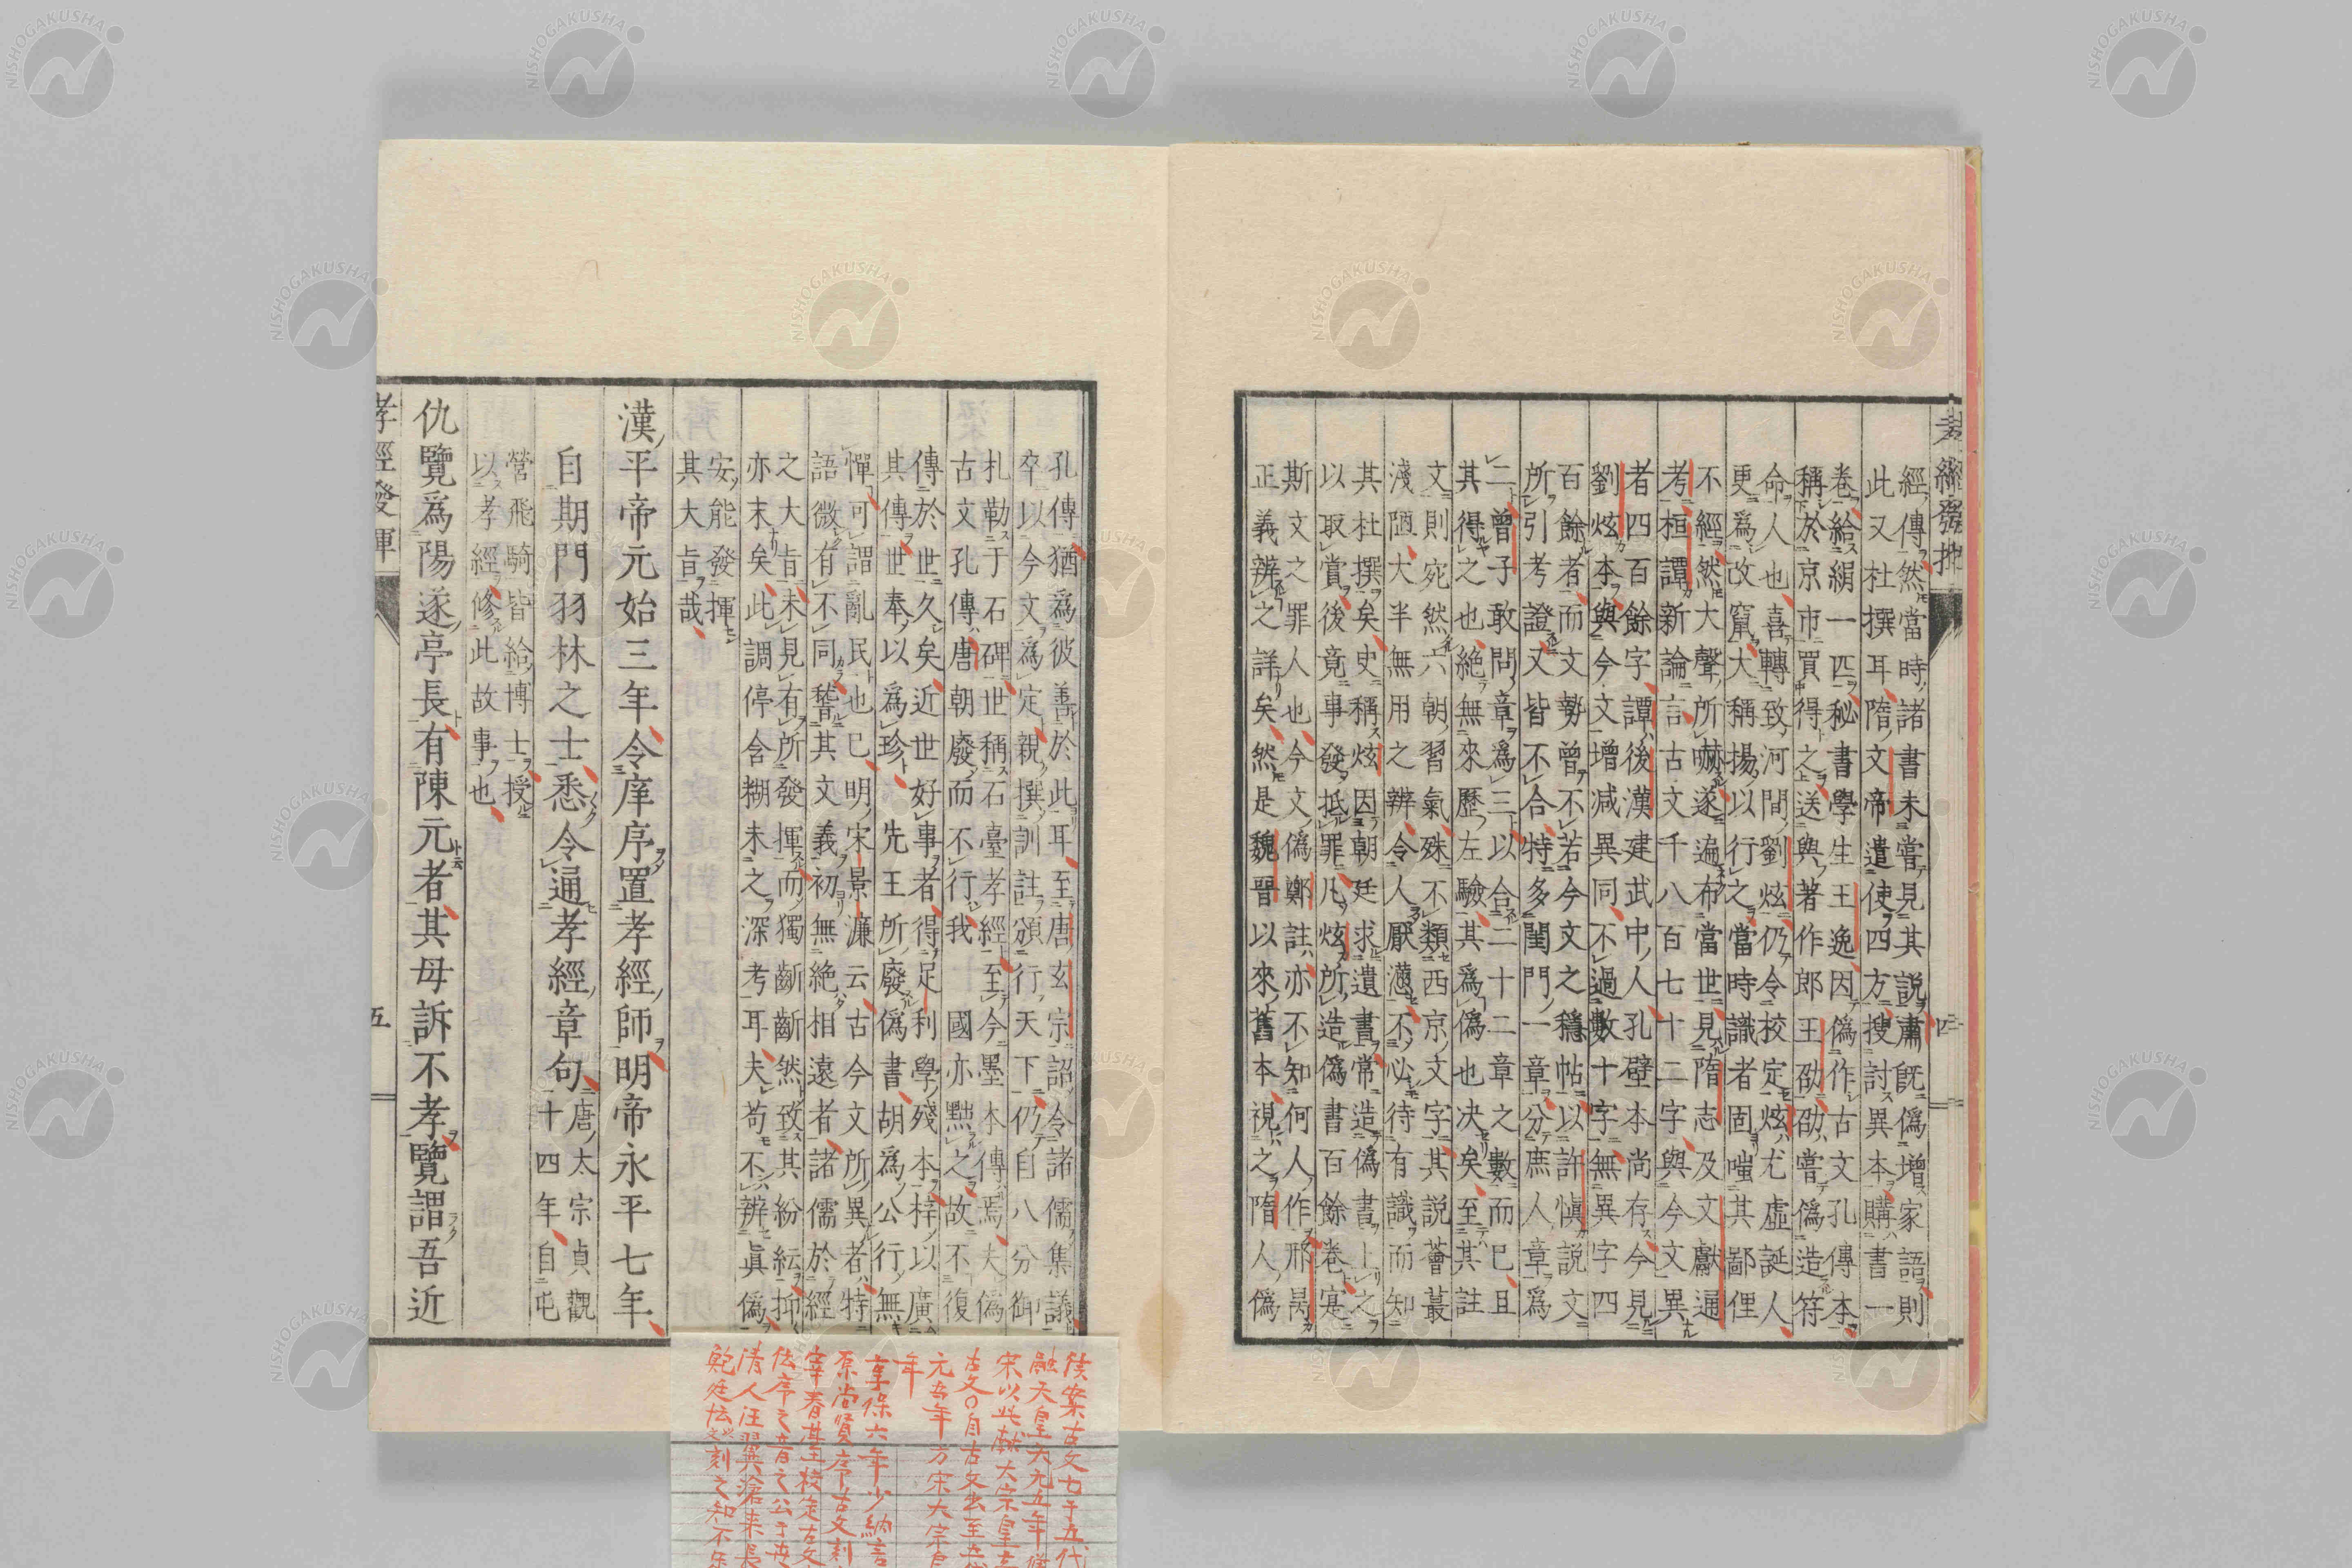 經傳然當時諸書未嘗見其說肅旣僞增家語則
此又杜撰耳隋文帝遣使四方搜討異本購書一
卷給絹一匹秘書學生王逸因僞作古文孔傳本
稱於京市買得之送與著作郎王劭劭嘗僞造符
命人也喜轉致河間劉炫仍令校定炫尤虛誕人
更爲改竄大稱揚以行之當時識者固嗤其鄙俚
不經然大聲所嚇遂遍布當世見隋志及文獻通
考桓譚新論言古文千八百七十二字與今文異
者四百餘字譚後漢建武中人孔壁本尚存今見
劉炫本與今文增減異同不過數十字無異字四
百餘者而文勢曾不若今文之穩帖以許愼說文
所引考證又皆不合特多閨門一章分庶人章爲
二曾子敢問章爲三以合二十二章之數而已且
其得之也絶無來歷左驗其爲僞也决矣至其註
文則宛然六朝習氣殊不類西京文字其說薈蕞
淺陋大半無用之辨令人厭懣不必待有識而知
其杜撰矣史稱炫因朝廷求遺書常造僞書上之
以取賞後竟事發抵罪凡炫所造僞書百餘卷寔
斯文之罪人也今文僞鄭註亦不知何人作邢昺
正義辨之詳矣然是魏晉以來舊本視之隋人僞
孔傳猶爲彼善於此耳至唐玄宗詔令諸儒集議
卒以今文爲定親撰訓註頒行天下仍自八分御
札勒于石碑世稱石臺孝經至今墨本傳焉夫僞
古文孔傳唐朝廢而不行我國亦黜之故不復
傳於世久矣近世好事者得足利學殘本梓以廣
其傳世奉以爲珍先王所廢僞書胡爲公行無
憚可謂亂民也已明宋景濂云古今文所異者特
語微有不同稽其文義初無絶相遠者諸儒於經
之大旨未見有所發揮而獨齗齗然致其紛紜抑
亦末矣此調停含糊未之深考耳夫苟不辨眞僞
安能發揮
其大旨哉
漢平帝元始三年令庠序置孝經師明帝永平七年
自期門羽林之士悉令通孝經章句
唐太宗貞觀
十四年自屯
營飛騎皆給博士授
以孝經修此故事也
仇覽爲陽遂亭長有陳元者其母訴不孝覽謂吾近
孝經發揮
五
四
古文〇自古文出至
元吾年方宋大宗
年
享保六年少納言
NISHOGAKUSHA